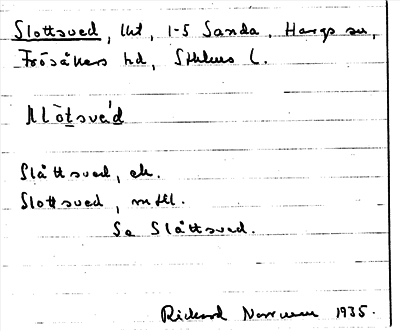 Slottsved, lht, 1-5 Sanda, Hargs sn,
Frösåkers hd, Sthlms l.
Slåttsved, ek.
Slottsved, mtl.
Se Slåttsved.
Rickard 1935.